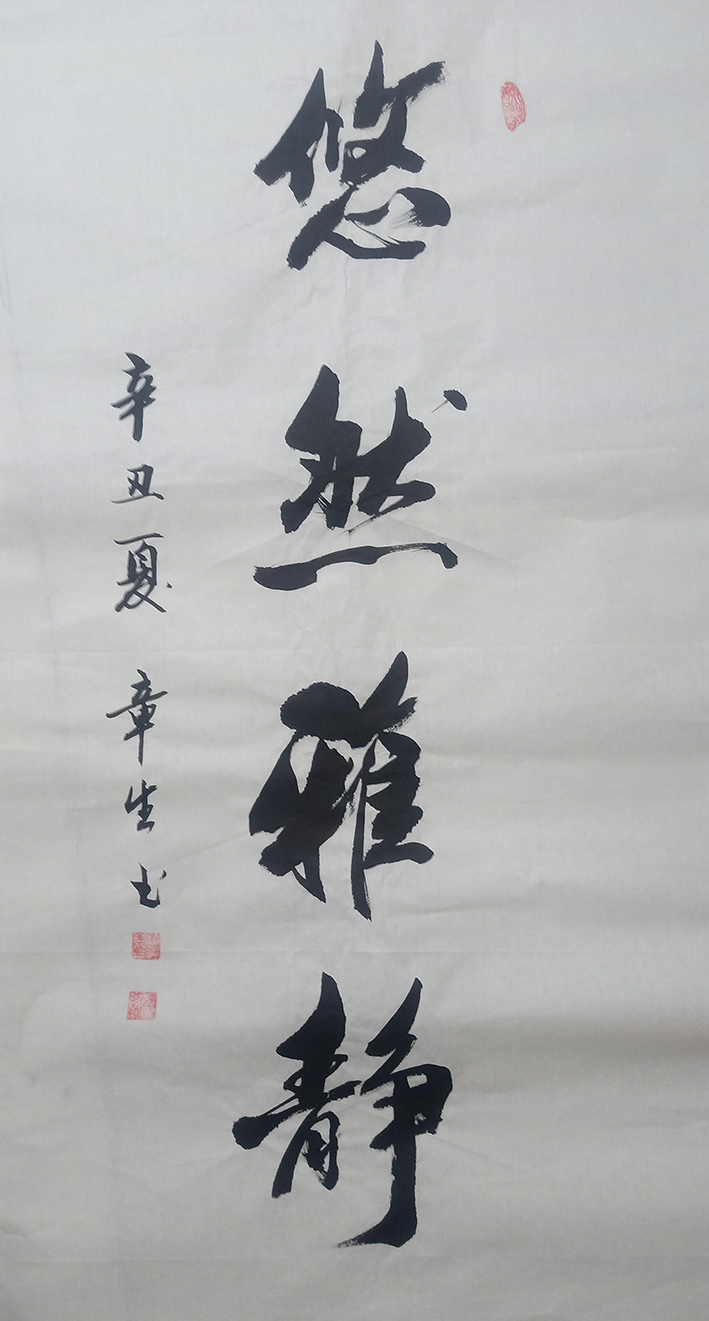 悠然雅静
辛丑夏 章生书